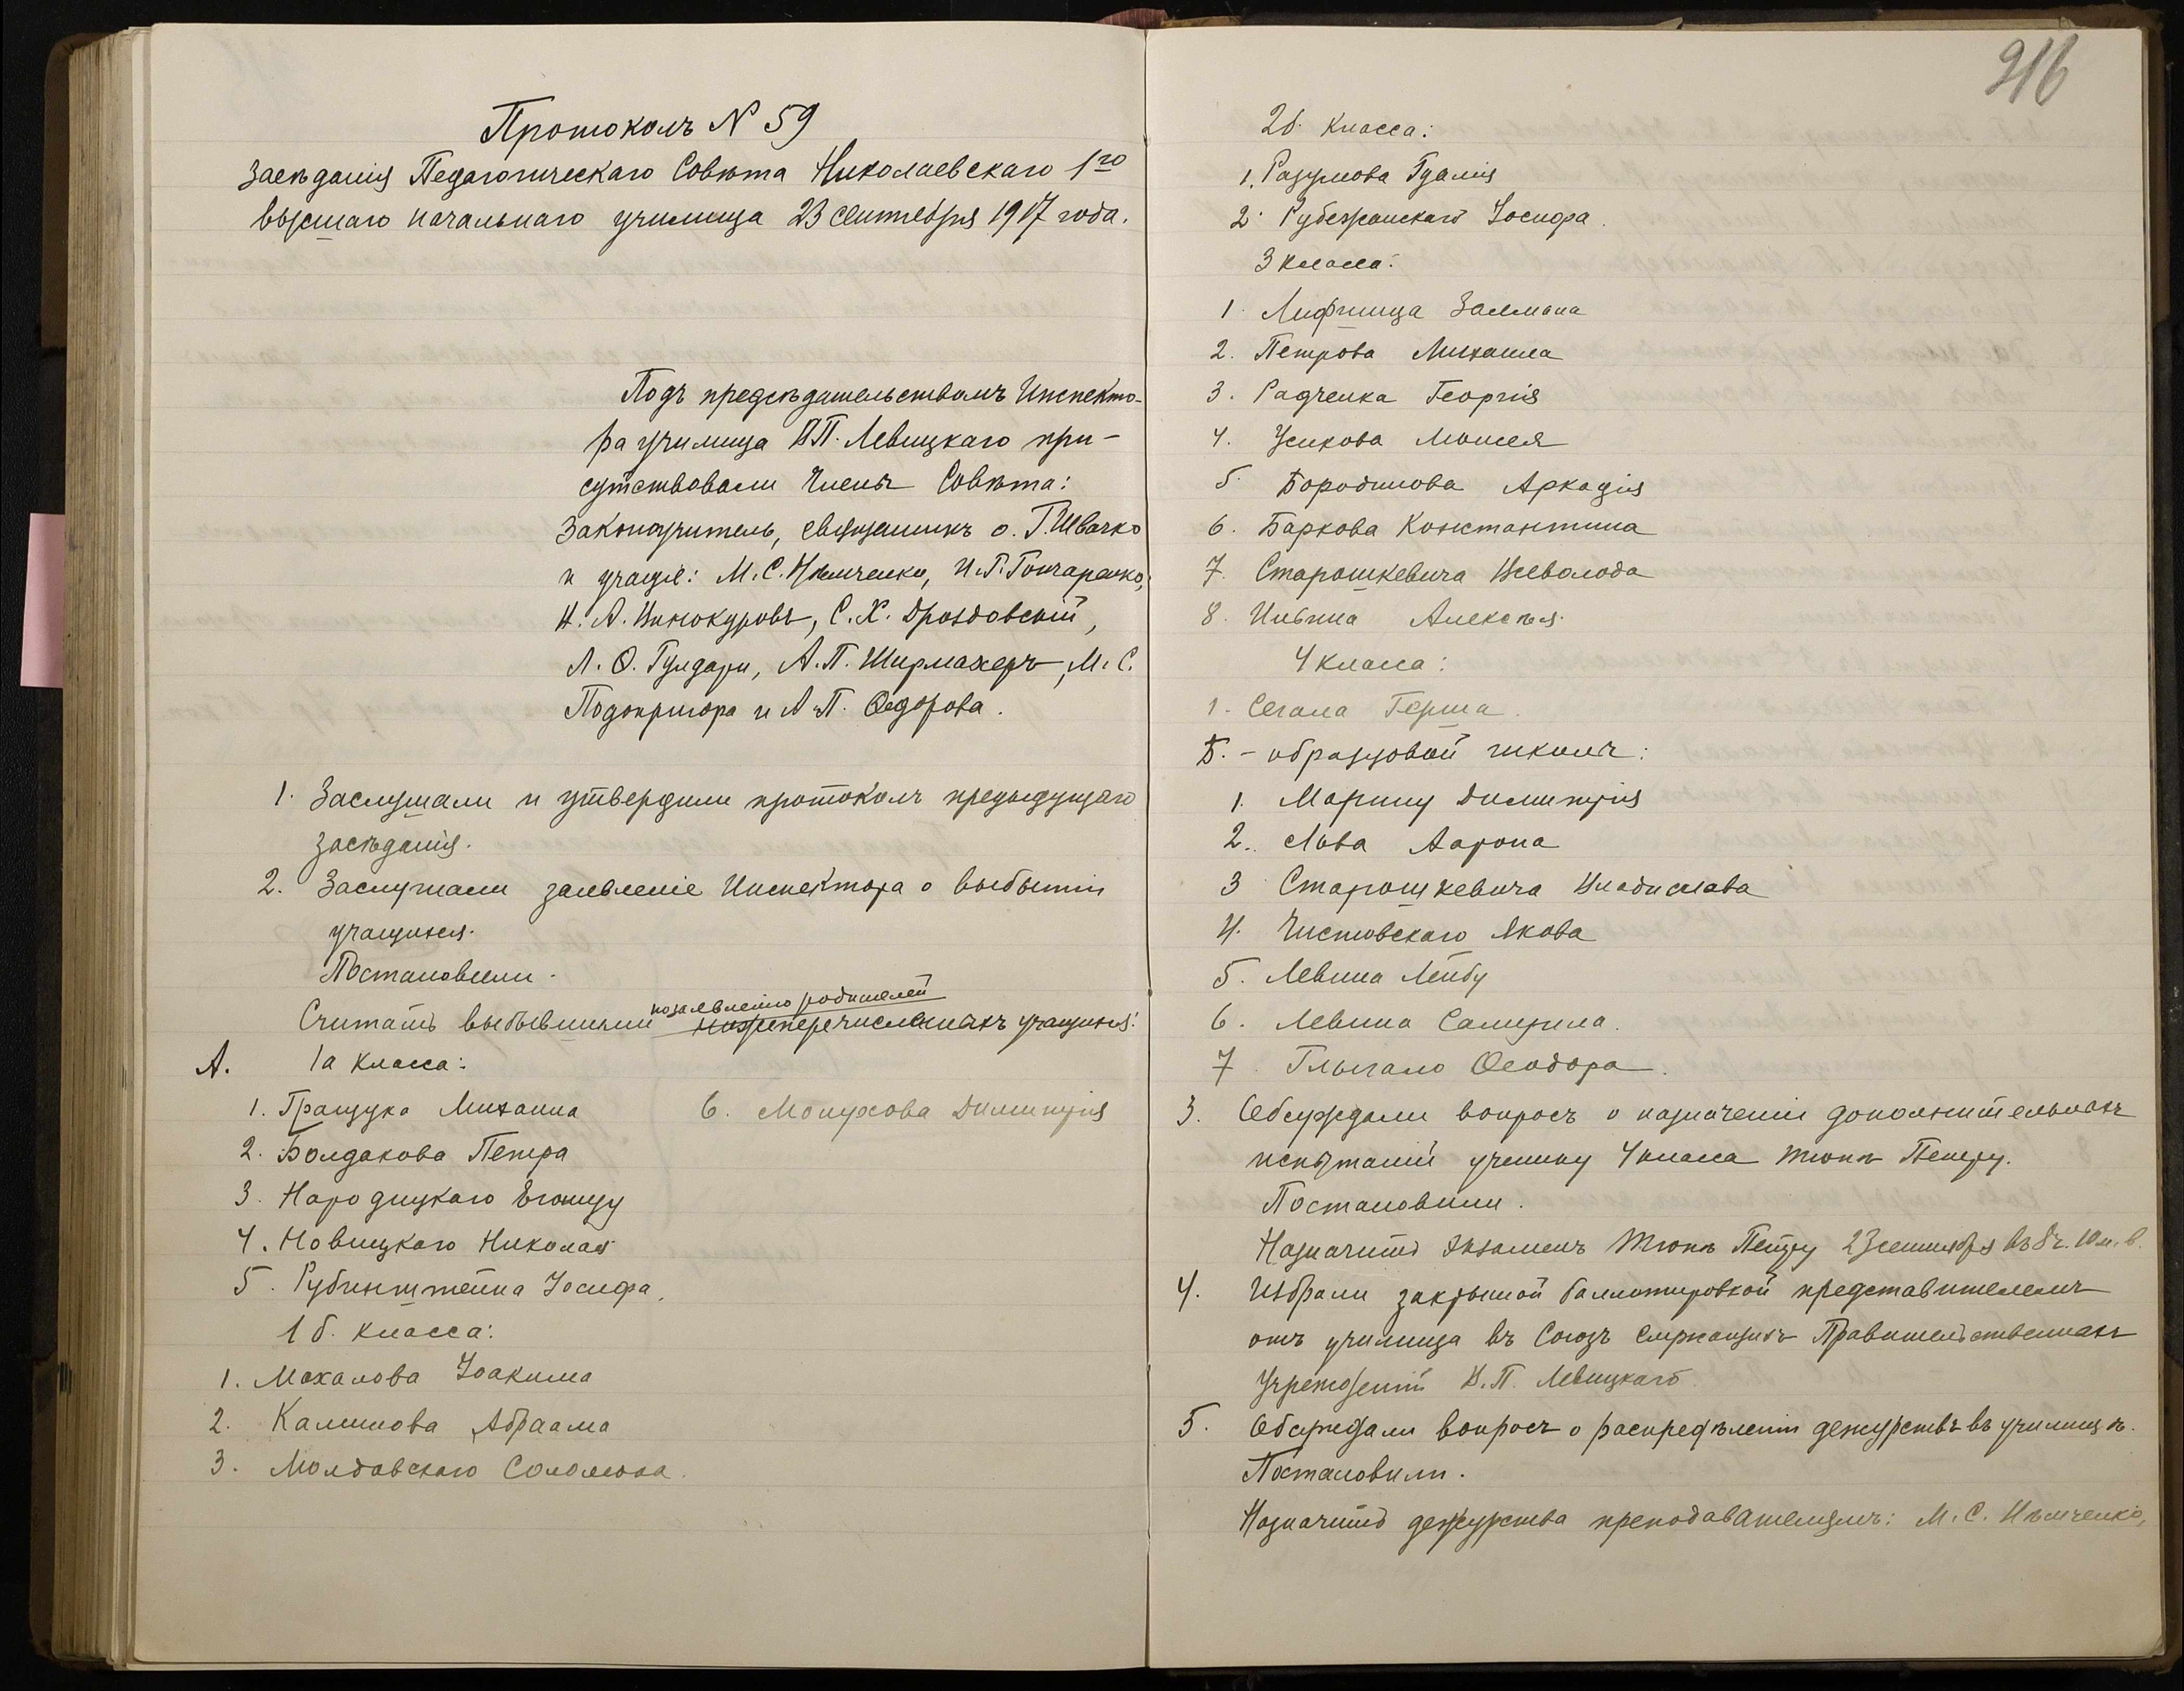 Протоколъ N 59
Засѣданія Педагогическаго Совѣта Николаевскаго 1го
высшаго начальнаго училища 23 сентября 1917 года.
Подъ предсѣдательствомъ Инспекто-
ра училища П. Левицкаго при-
сутствовали Члены Совѣта:
Законоучитель, священникъ о. Г. Швачко
и учащіе: М. С. Нѣмченко, И. Г. Гончаренко,
Н. А. Винокуровъ, С. Х. Дроздовскій,
Л. О. Гулдари, А. П. Ширмахеръ, М. С.
Подопригора и А. П. Ѳедорова.
1. Заслушали и утвердили протоколъ предыдущаго
засѣданія.
2. Заслушали заявленіе Инспектора о выбытіи
учащихся.
Постановили.
по заявленію родителей
Считать выбывшими нижеперечисленныхъ учащихся:
А. 1а класса:
1. Гращука Михаила 6. Монухова Димитрія
2. Болдакова Петра
3. Народицкаго
4. Новицкаго Николая
5. Рубинштейна Іосифа,
1 б. класса:
1. Махалова Іоакима
2. Калинова Абраама
3. Молдавскаго Соломона.
216
2б. класса:
1. Разумова Гдалія
2. Рубежанскаго Іосифа.
3 класса:
1. Лифшица Залмана
2. Петрова Михаила
3. Радченка Георгія
4. Усикова Моисея
5. Бородинова Аркадія
6. Баркова Константина
7. Старошкевича Всеволода
8. Ильина Алексѣя.
4 класса:
1. Сегала Герша.
Б. - образцовой школы:
1. Марину Димитрія
2. Льва Аарона
3 Старошкевича Владислава
4. Чистовскаго Якова
5. Левина Лейбу
6. Левина Самуила.
7. Ѳеодора.
3. Обсуждали вопросъ о назначеніи дополнительныхъ
испытаній ученику 4 класса Тюпѣ Петру.
Постановили.
Назначить экзаменъ Тюпѣ Петру 23 сентября въ 8 ч. 10 м. в.
4. Избрали закрытой баллотировкой представителемъ
отъ училища въ Союзъ служащихъ Правительственныхъ
Учрежденій П. Левицкаго.
5. Обсуждали вопросъ о распредѣленіи дежурствъ въ училищѣ.
Постановили.
Назначить дежурства преподавателямъ: М. С. Нѣмченко,